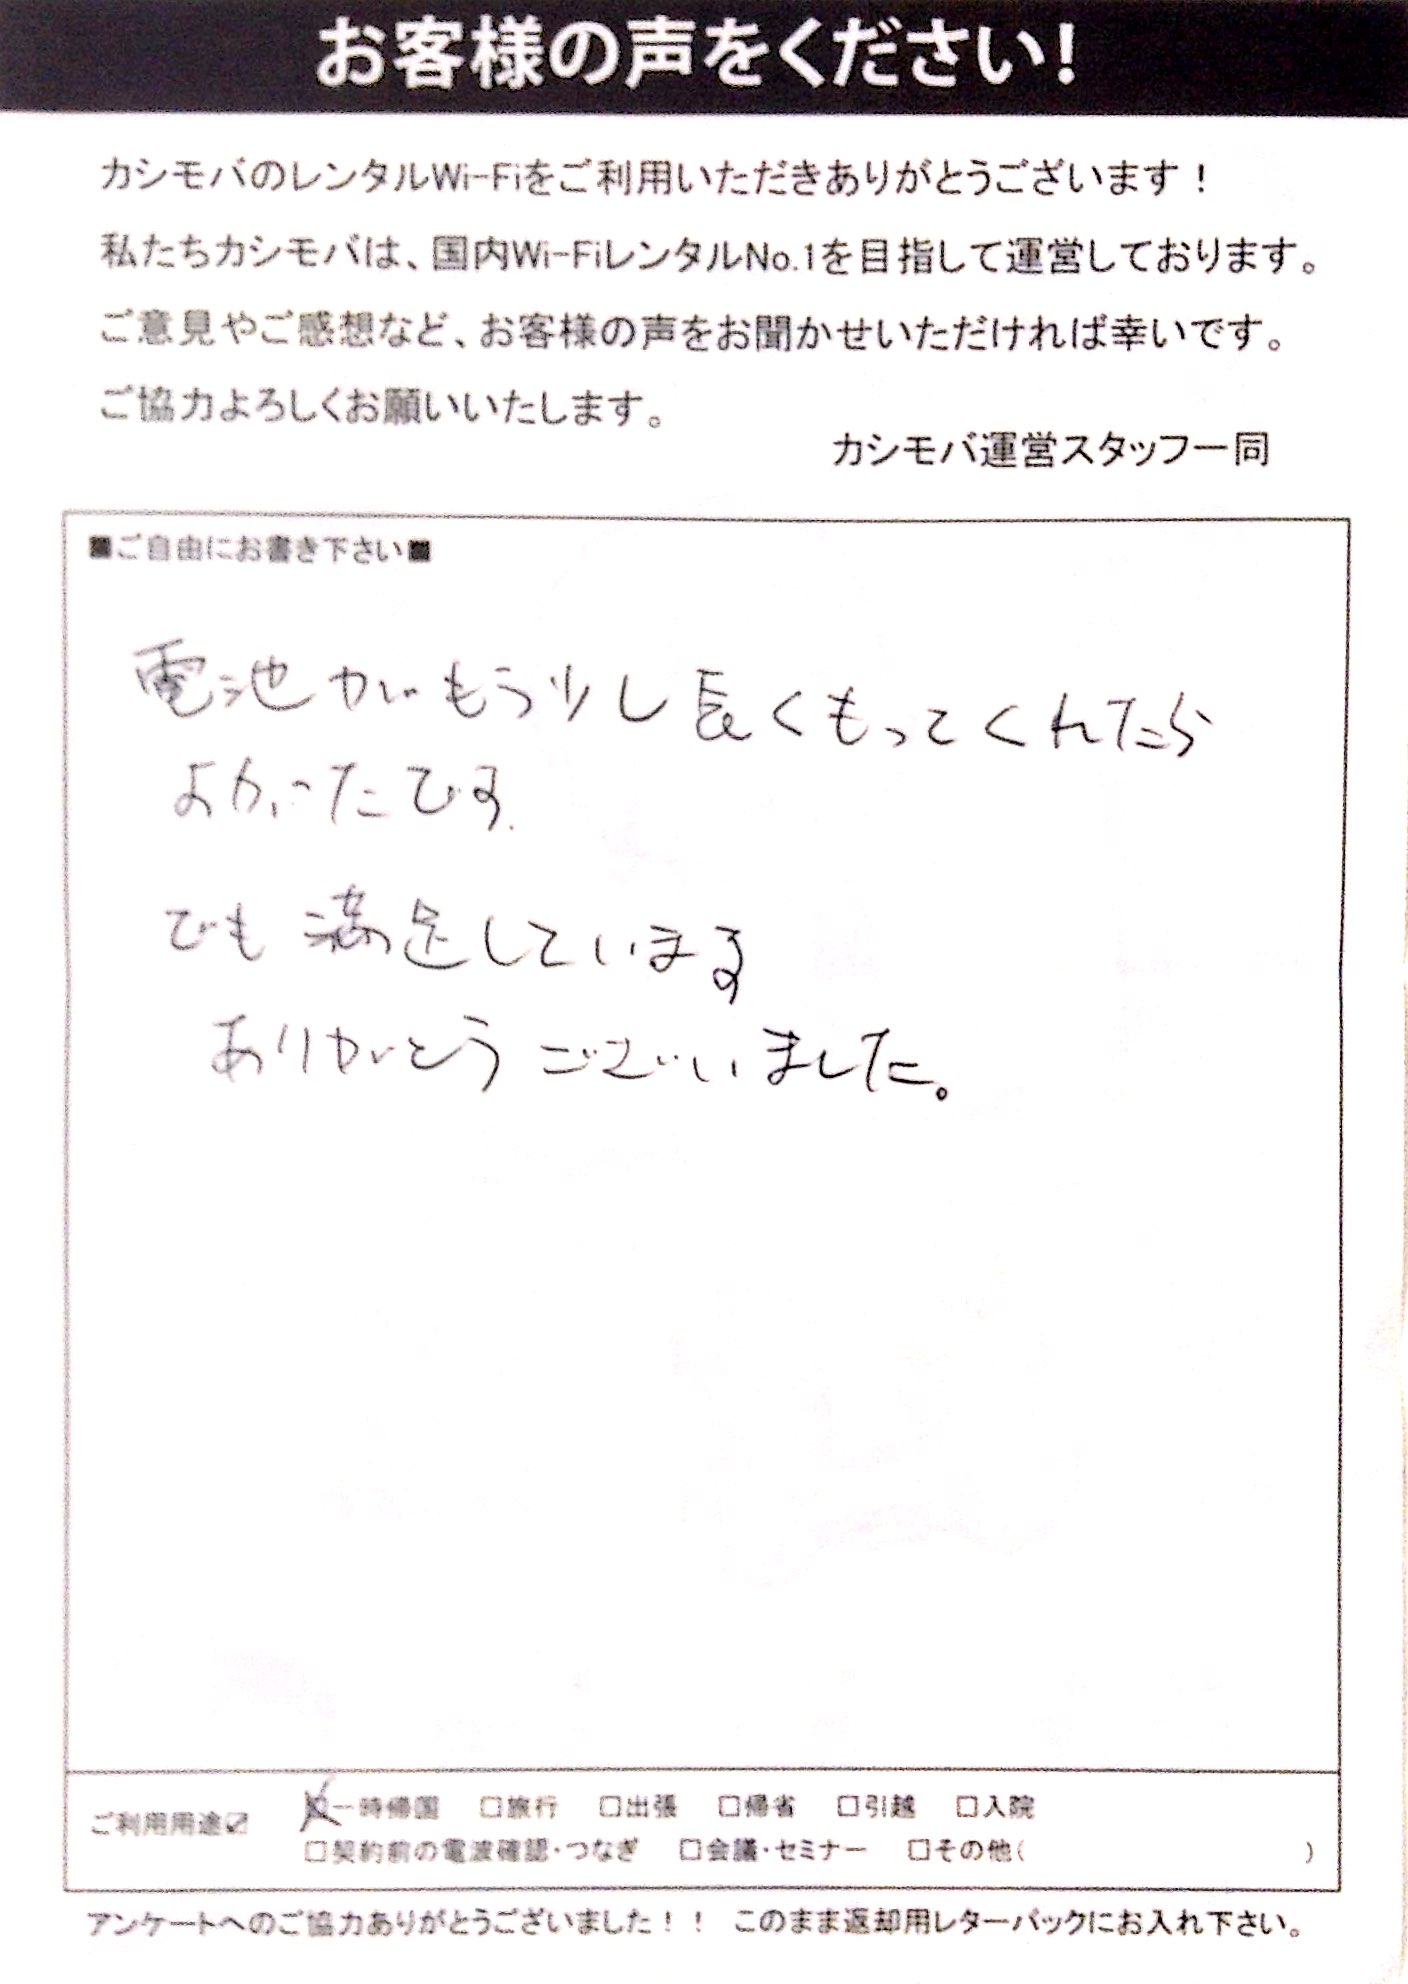 お客様の声をください!
カシモバのレンタルWi-Fiをご利用いただきありがとうございます！
私たちカシモバは、国内Wi-FiレンタルNo.1を目指して運営しております。
ご意見やご感想など、お客様の声をお聞かせいただければ幸いです。
ご協力よろしくお願いいたします。
カシモバ運営スタッフ一同
■ご自由にお書き下さい■
電池がもう少し長くもってくれたら
よかったです.
でも 満足しています
ありがとう ございました。
ご利用用途☑ ☒一時帰国 □旅行 □出張 □帰省 □引越 □入院
□契約前の電波確認・つなぎ □会議・セミナー □その他( )
アンケートへのご協力ありがとうございました！！ このまま返却用レターパックにお入れ下さい。